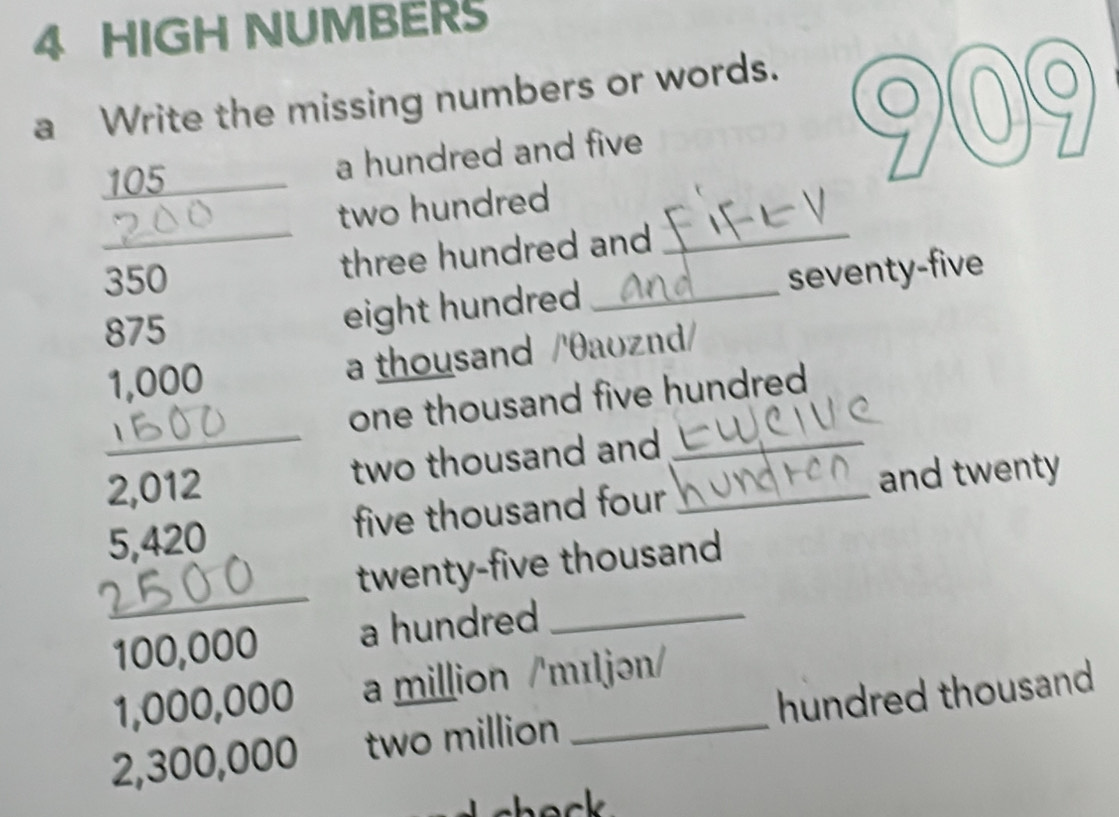 4 HIGH NUMBERS
909
a Write the missing numbers or words.
105 a hundred and five
200 two hundred
350 three hundred and FiFtY
875 eight hundred and seventy-five
1,000 a thousand /ˈθaʊznd/
1500 one thousand five hundred
2,012 two thousand and twelve
5,420 five thousand four hundren and twenty
2500 twenty-five thousand
100,000 a hundred ______
1,000,000 a million /ˈmɪljən/
2,300,000 two million ______ hundred thousand
check